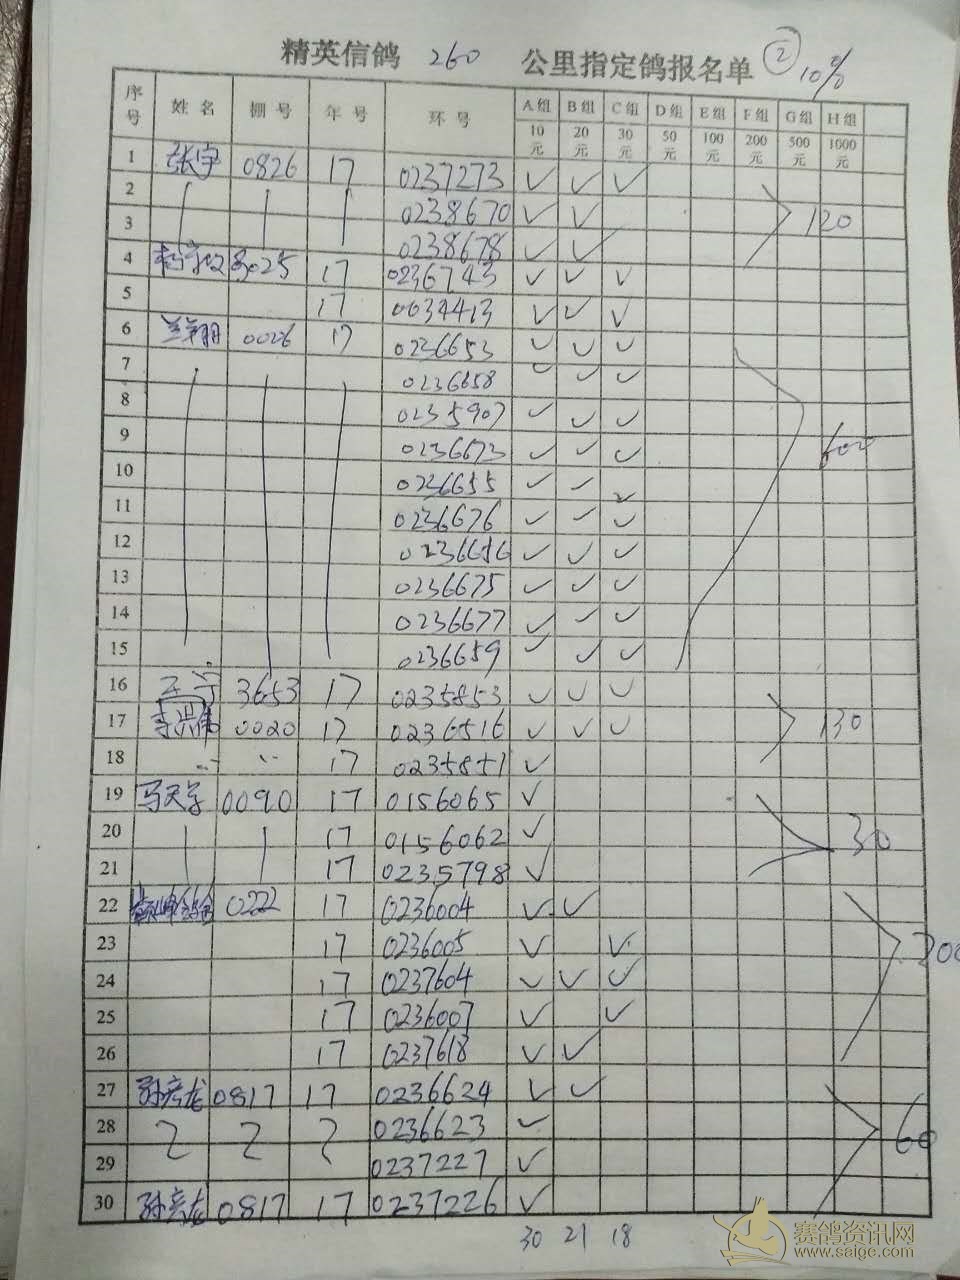 精英信鸽 260 公里指定鸽报名单 ② 10%
序号 姓名 棚号 年号 环号 A组 B组 C组 D组 E组 F组 G组 H组
10元 20元 30元 50元 100元 200元 500元 1000元
1 张宇 0826 17 0237273 ✓ ✓ ✓
2 0238670 ✓ ✓ 120
3 0238678 ✓ ✓
4 8025 17 0236743 ✓ ✓ ✓
5 17 0034413 ✓ ✓ ✓
6 兰翔 0026 17 0236653 ✓ ✓ ✓
7 0236658 ✓ ✓ ✓
8 0235907 ✓ ✓ ✓
9 0236673 ✓ ✓ ✓ 600
10 0236655 ✓ ✓ ✓
11 0236676 ✓ ✓ ✓
12 0236656 ✓ ✓ ✓
13 0236675 ✓ ✓ ✓
14 0236677 ✓ ✓ ✓
15 0236659 ✓ ✓ ✓
16 王宁 3653 17 0235853 ✓ ✓ ✓
17 李洪伟 0020 17 0236516 ✓ ✓ ✓ 130
18 17 0235851 ✓
19 马天学 0090 17 0156065 ✓
20 17 0156062 ✓ 30
21 17 0235798 ✓
22 0222 17 0236004 ✓ ✓
23 17 0236005 ✓ ✓ 200
24 17 0237604 ✓ ✓ ✓
25 17 0236007 ✓ ✓
26 17 0237618 ✓ ✓
27 孙彦龙 0817 17 0236624 ✓ ✓
28 0236623 ✓ 60
29 0237227 ✓
30 孙彦龙 0817 17 0237226 ✓
30 21 18
赛鸽资讯网
www.saige.com